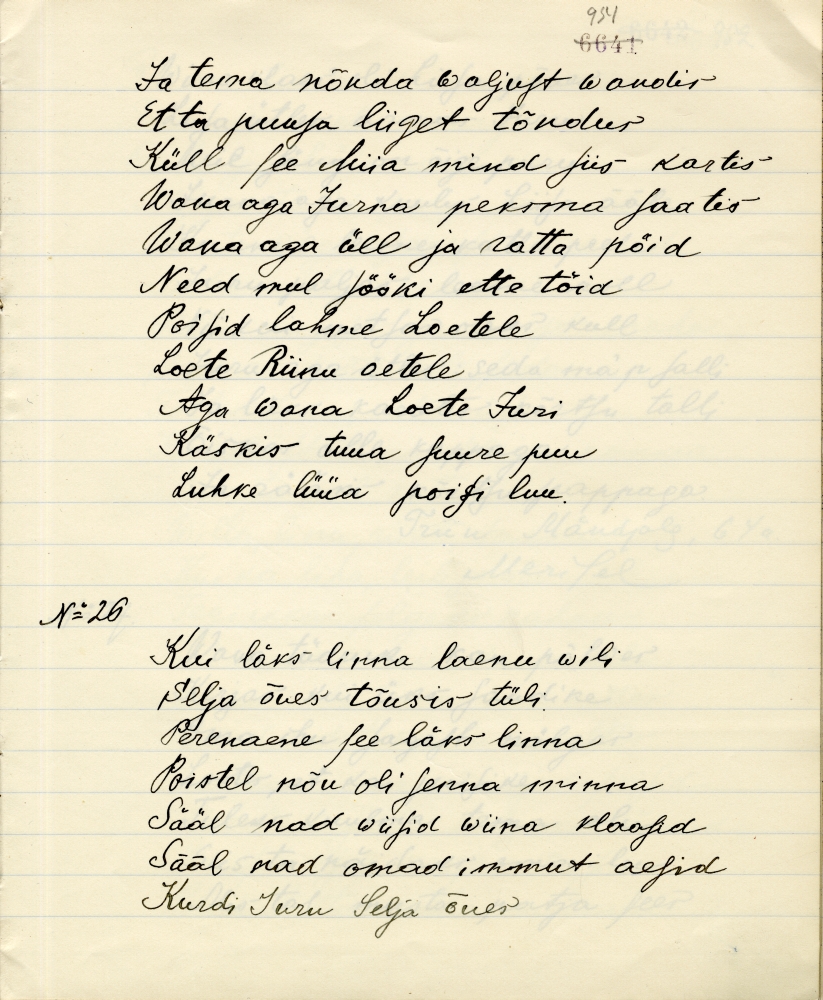 954
6641
Ja tema nõnda waljust wandis
Et ta puusa liiget tõndus
Küll see Miia mind siis kartis
Wana aga Jurna peksma saatis
Wana aga üll ja ratta pöid
Need mul sööki ette töid
Poisid lahme Loetele
Loete Riinu oetele
Aga wana Loete Juri
Käskis tuua suure puu
Luhke lüüa poisi luu.
No 26
Kui läks linna laenu wili
Selja õues tõusis tüli
Perenaene see läks linna
Poistel nõu oli senna minna
Sääl nad wiisid wiina klaasid
Sääl nad omad immut aesid
Kurdi Juru Selja õues